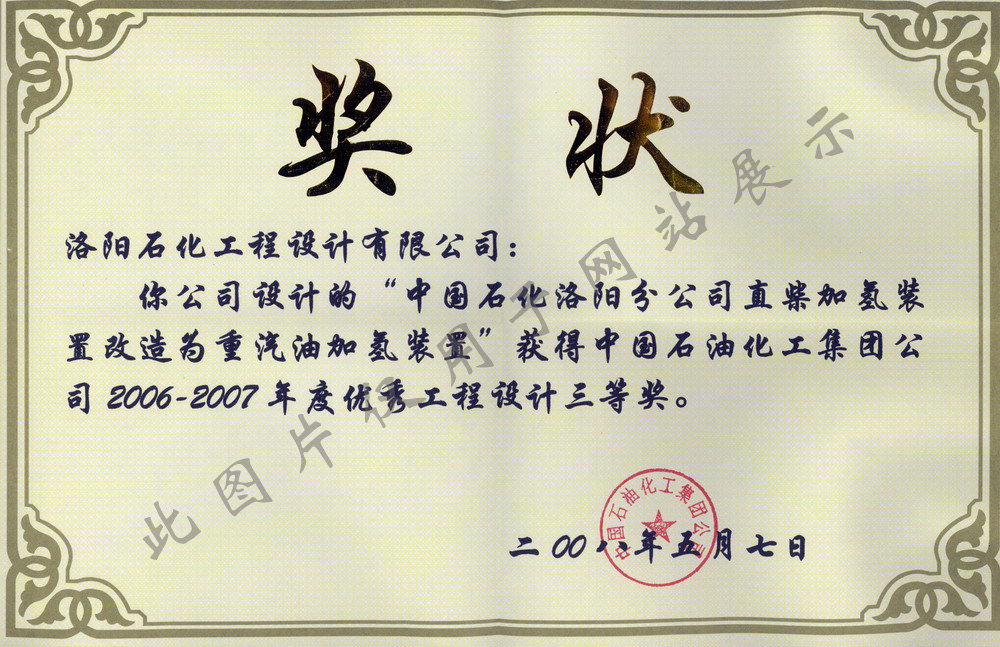 奖状
洛阳石化工程设计有限公司：
你公司设计的“中国石化洛阳分公司直柴加氢装
置改造为重汽油加氢装置”获得中国石油化工集团公
司2006-2007年度优秀工程设计三等奖。
中国石油化工集团公司
二00八年五月七日
此图片仅用于网站展示